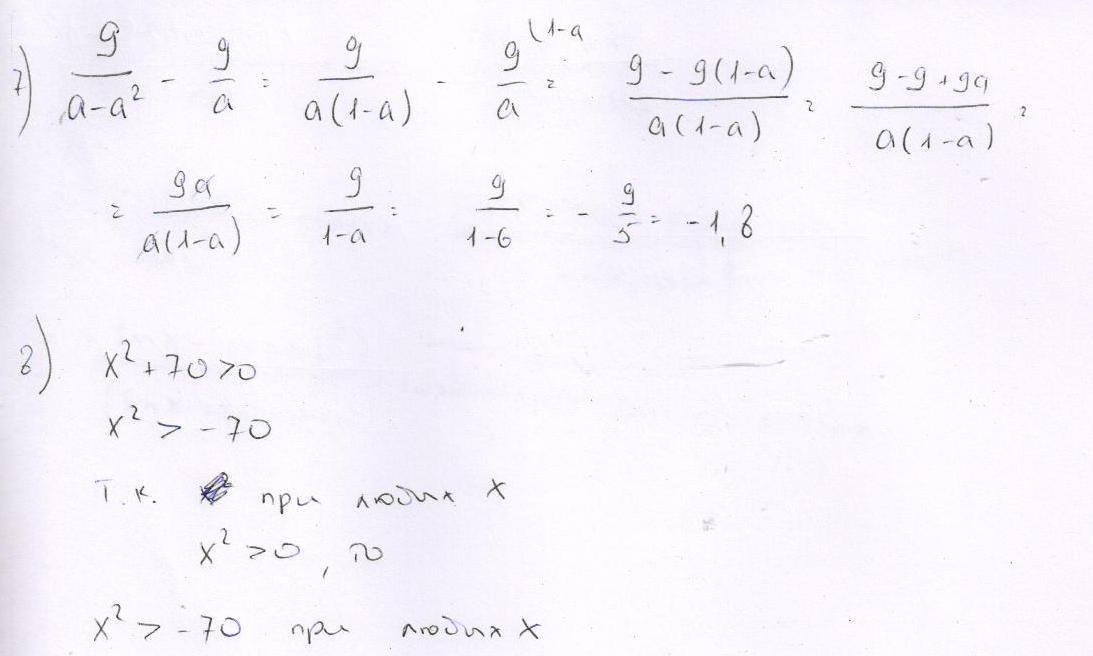 7) 9/(a-a²) - 9/a = 9/(a(1-a)) - 9/a (1-a = (9-9(1-a))/(a(1-a)) = (9-9+9a)/(a(1-a)) =
= 9a/(a(1-a)) = 9/(1-a) = 9/(1-6) = - 9/5 = -1,8
8) x²+70>0
x² > -70
Т.к. при любых x
x² >0, то
x² > -70 при любых x